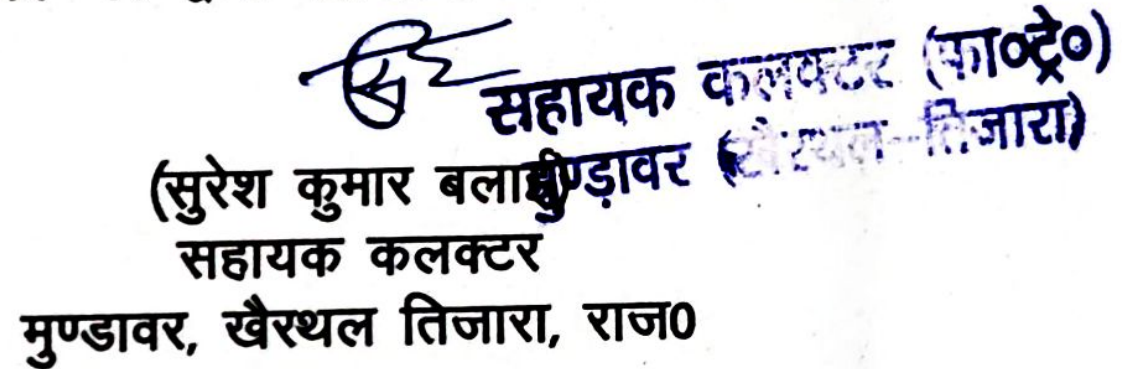 सहायक कलक्टर (फा०ट्रे०)
मुण्ड़ावर (खैरथल-तिजारा)
(सुरेश कुमार बलाई)
सहायक कलक्टर
मुण्डावर, खैरथल तिजारा, राज0